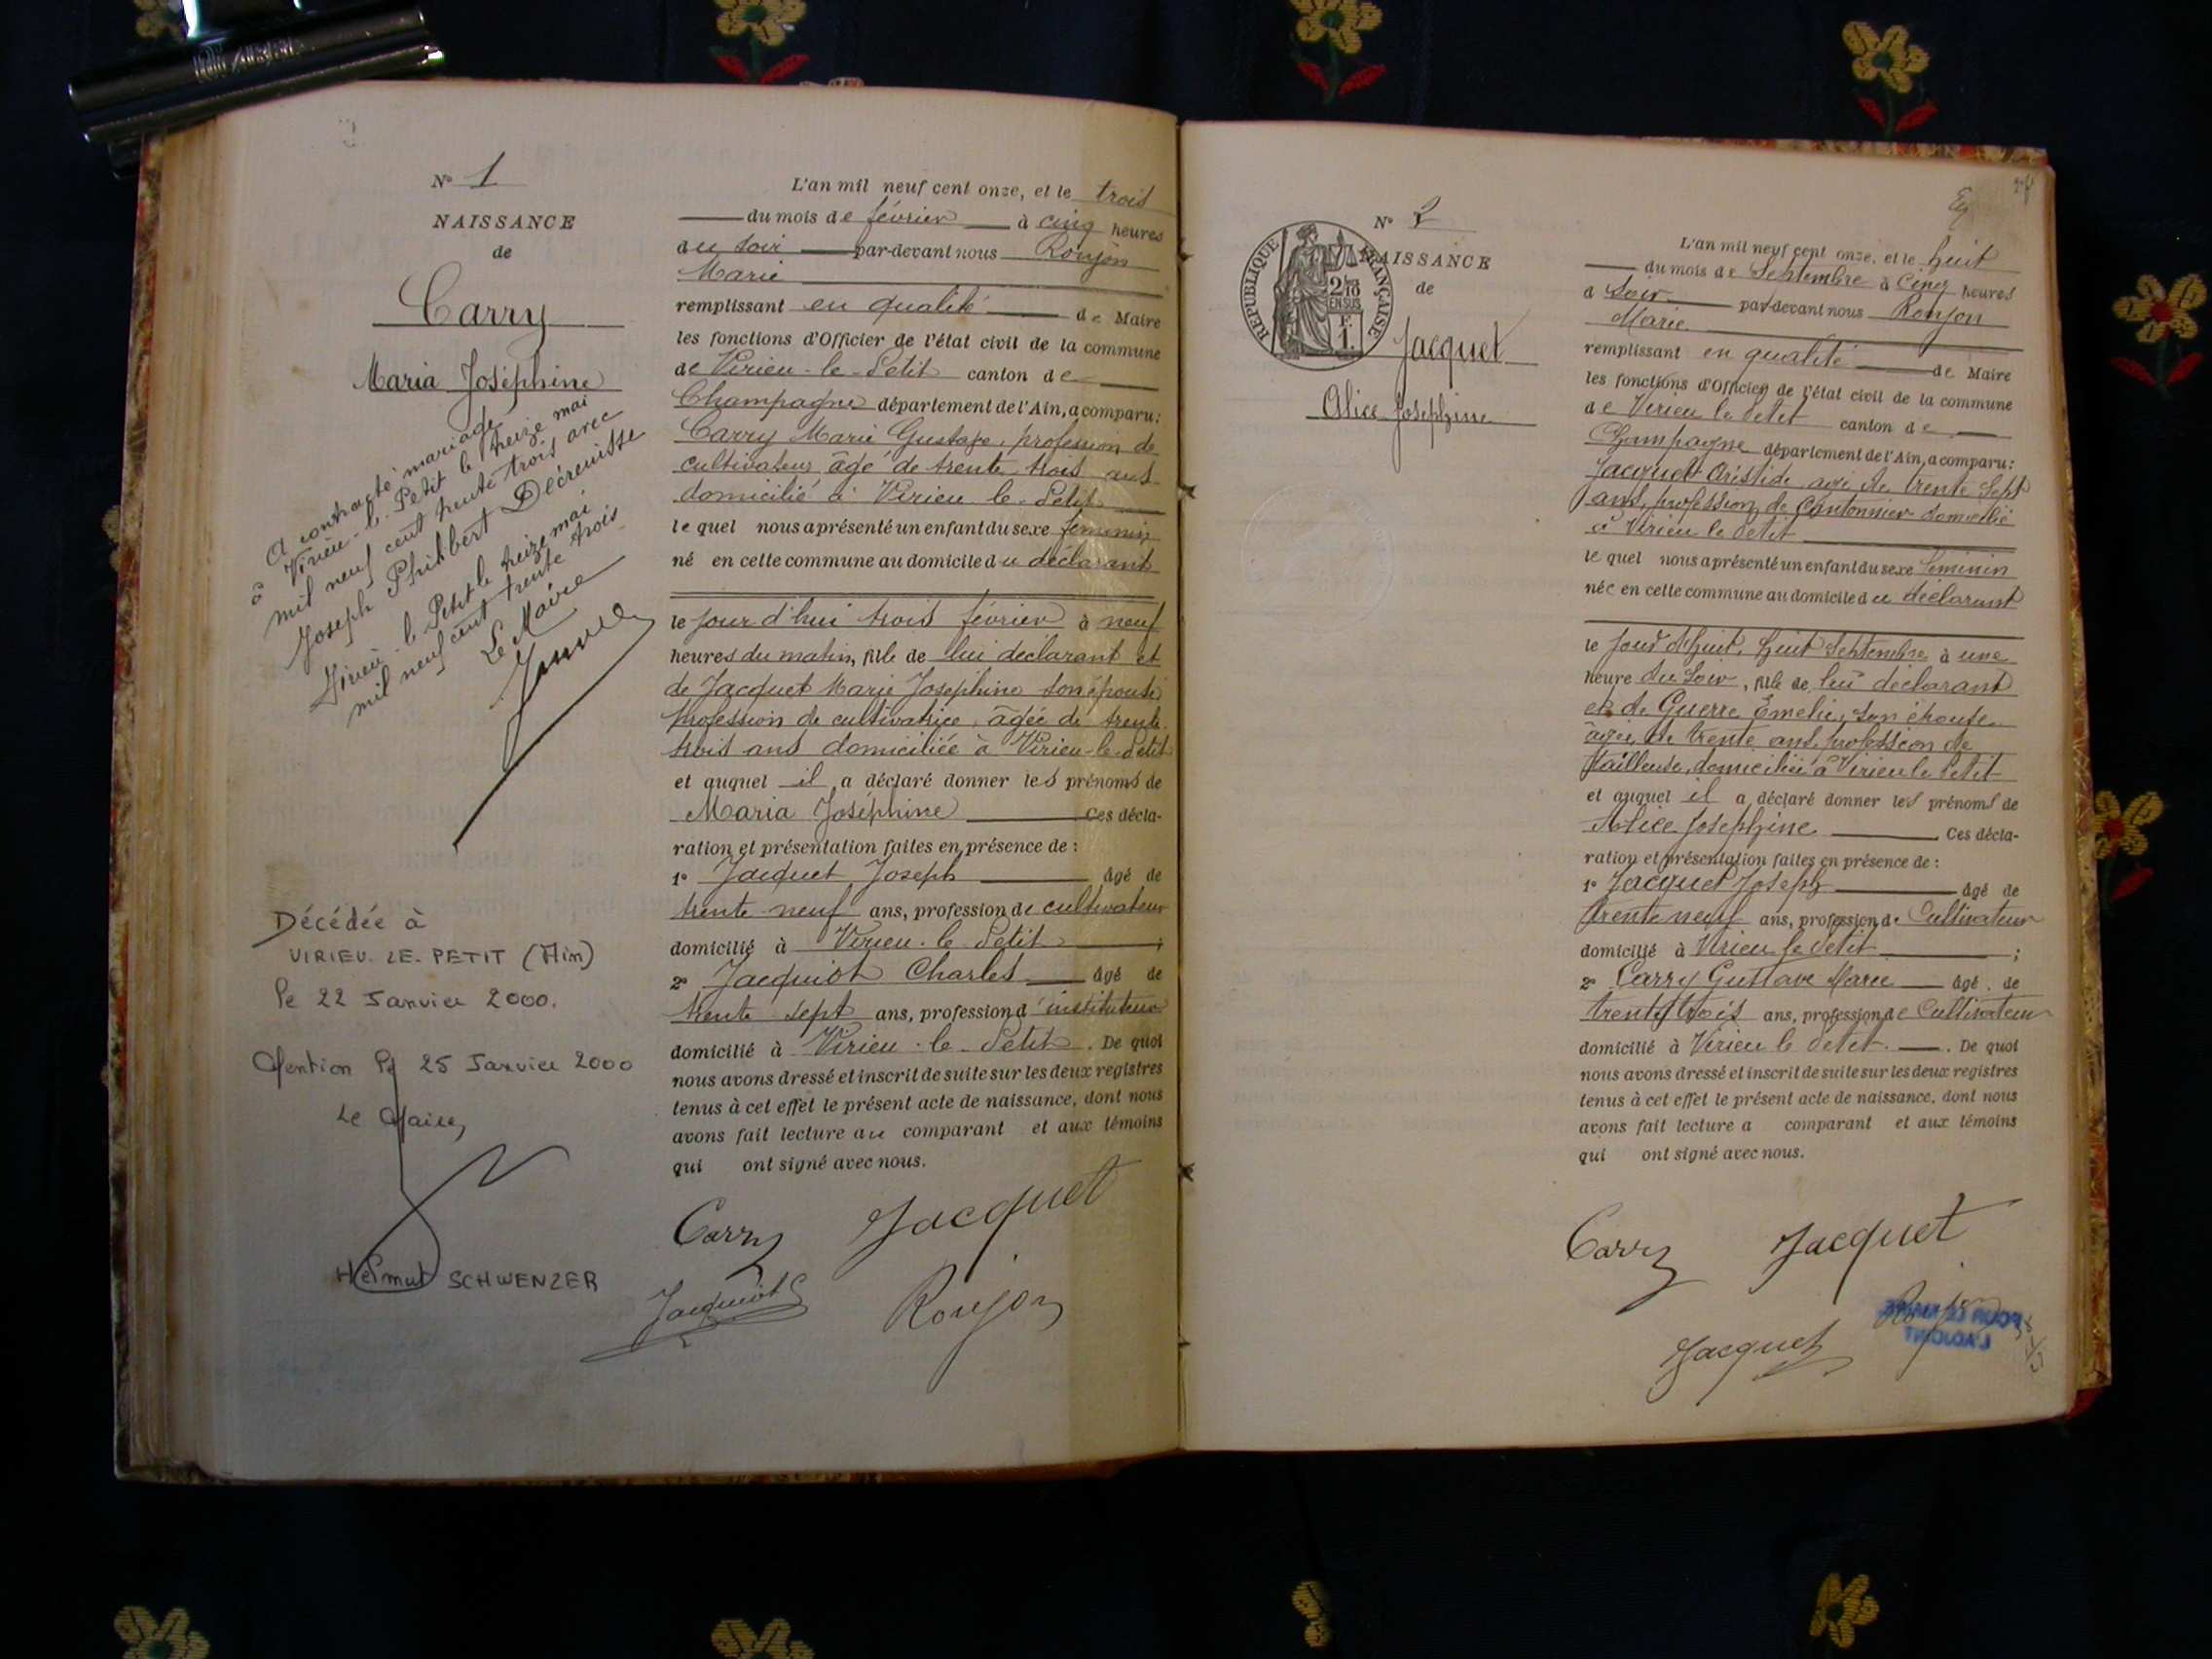 N° 1
NAISSANCE
de
Carry
Maria Joséphine
A contracté mariage
à Virieu-le-Petit le treize mai
mil neuf cent trente trois avec
Joseph Philibert Décreuisse
Virieu-le-Petit le treize mai
mil neuf cent trente trois
Le Maire
Décédée à
VIRIEU-LE-PETIT (Ain)
le 22 Janvier 2000.
Mention le 25 Janvier 2000
Le Maire,
Helmut SCHWENZER
L'an mil neuf cent onze, et le trois
du mois de février à cinq heures
du soir par-devant nous Roujon
Marie
remplissant en qualité de Maire
les fonctions d'Officier de l'état civil de la commune
de Virieu-le-Petit canton de
Champagne département de l'Ain, a comparu:
Carry Marie Gustave, profession de
cultivateur âgé de trente trois ans
domicilié à Virieu-le-Petit
le quel nous a présenté un enfant du sexe féminin
né en cette commune au domicile du déclarant
le jour d'hui trois février à neuf
heures du matin, fille de lui déclarant et
de Jacquet Marie Joséphine son épouse
profession de cultivatrice, âgée de trente
trois ans domiciliée à Virieu-le-Petit
et auquel il a déclaré donner les prénoms de
Maria Joséphine Ces décla-
ration et présentation faites en présence de :
1° Jacquet Joseph âgé de
trente-neuf ans, profession de cultivateur
domicilié à Virieu-le-Petit ;
2° Jacquiot Charles âgé de
trente-sept ans, profession d'instituteur
domicilié à Virieu-le-Petit. De quoi
nous avons dressé et inscrit de suite sur les deux registres
tenus à cet effet le présent acte de naissance, dont nous
avons fait lecture au comparant et aux témoins
qui ont signé avec nous.
Carry Jacquet
Jacquiot Roujon
N° 2
NAISSANCE
de
REPUBLIQUE FRANÇAISE
2/10
EN SUS
F.
1.
Jacquet
Alice Josephine
L'an mil neuf cent onze, et le huit
du mois de Septembre à Cinq heures
d Soir par-devant nous Roujon
Marie
remplissant en qualité de Maire
les fonctions d'Officier de l'état civil de la commune
de Virieu le Petit canton de
Champagne département de l'Ain, a comparu:
Jacquet Aristide agé de trente Sept
ans, profession de Cantonnier domicilié
à Virieu le Petit
le quel nous a présenté un enfant du sexe féminin
née en cette commune au domicile du déclarant
le jour d'huit, huit Septembre à une
heure du Soir, fille de lui déclarant
et de Guerre Emelie, son épouse
âgée de trente ans, profession de
tailleuse, domiciliée à Virieu le Petit
et auquel il a déclaré donner les prénoms de
Alice Josephine Ces décla-
ration et présentation faites en présence de :
1° Jacquet Joseph âgé de
trente neuf ans, profession de Cultivateur
domicilié à Virieu le Petit ;
2° Carry Gustave Marie âgé de
trente trois ans, profession de Cultivateur
domicilié à Virieu le Petit. De quoi
nous avons dressé et inscrit de suite sur les deux registres
tenus à cet effet le présent acte de naissance, dont nous
avons fait lecture a comparant et aux témoins
qui ont signé avec nous.
Carry Jacquet
Jacquet Roujon